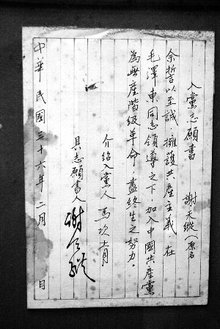 入黨志願書　謝天縱（原名
余誓以至誠，擁護共產主義，在
毛澤東同志領導之下，加入中國共產黨
為無產階級革命，盡終生之努力，
介紹入黨人
具志願書人
中華民國三十六年二月　日